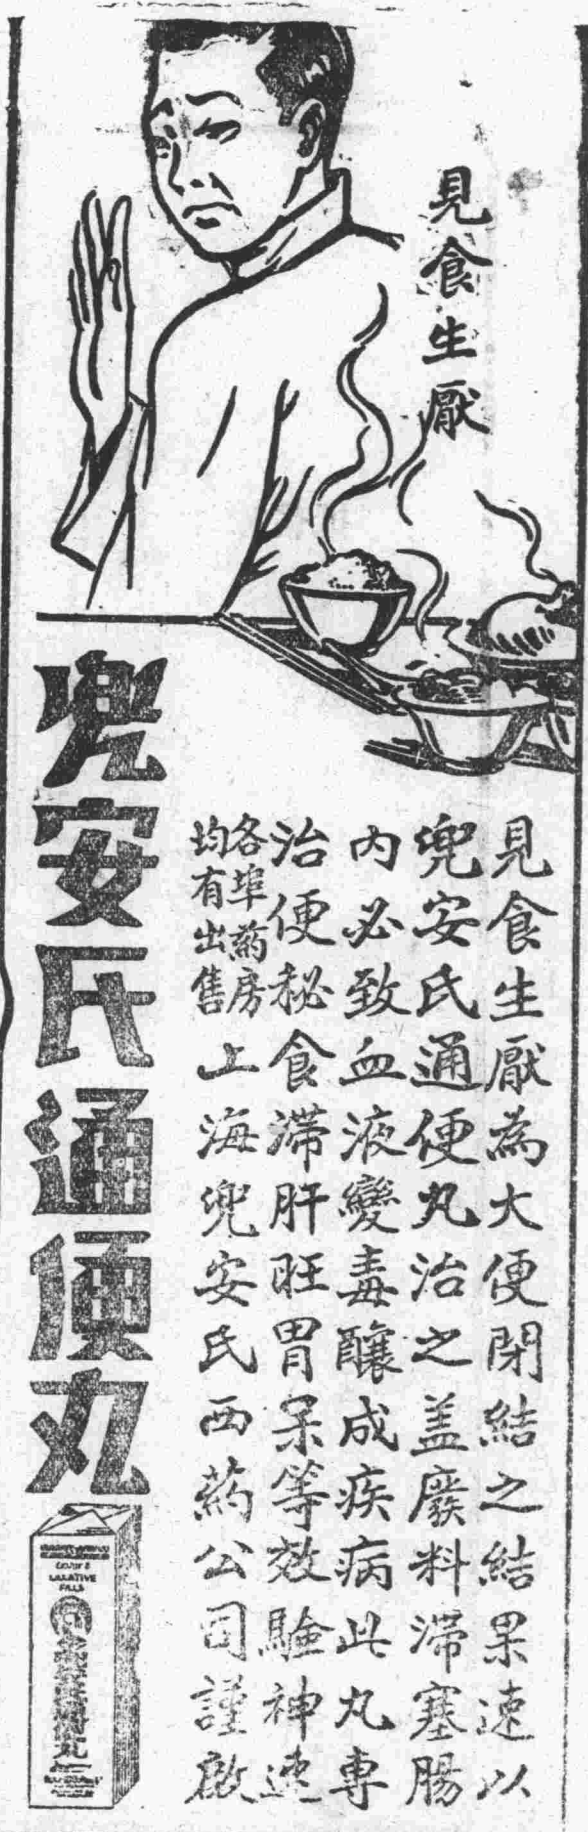 見食生厭
見食生厭為大便閉結之結果速以
兜安氏通便丸治之盖廢料滯塞腸
內必致血液變毒釀成疾病此丸專
治便秘食滯肝旺胃呆等效驗神速
各埠葯房
均有出售
上海兜安氏西葯公司謹啟
兜安氏通便丸
LAXATIVE
PILLS